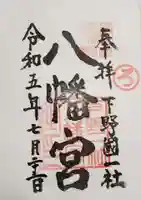 奉拝
下野國一社
八幡宮
令和五年七月二十二日